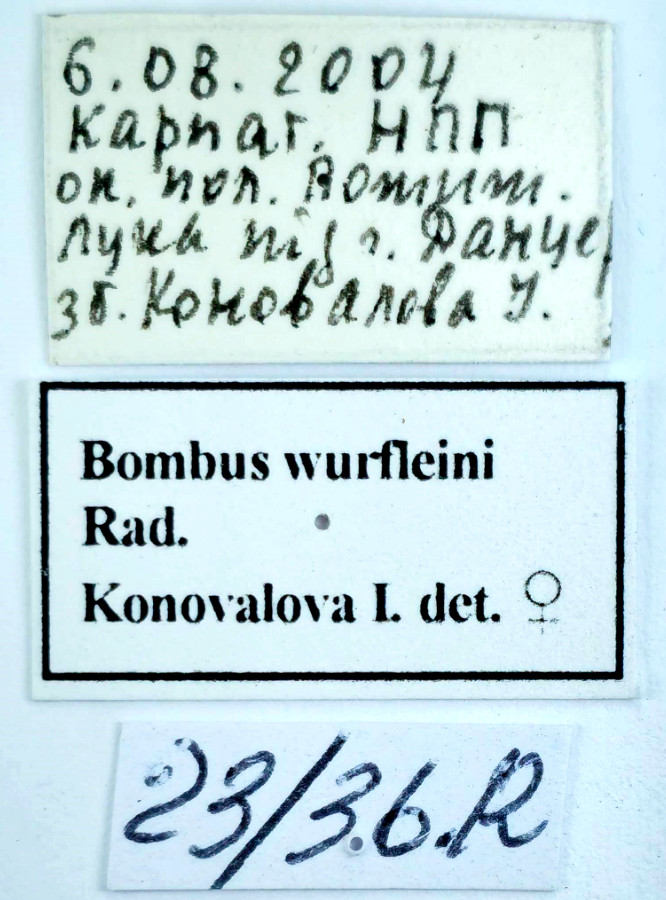 6.08.2004
Карпат. НПП
ок. пол.
лука під г. Данцер
зб. Коновалова І.
Bombus wurfleini
Rad.
Konovalova I. det. ♀
23/36.R